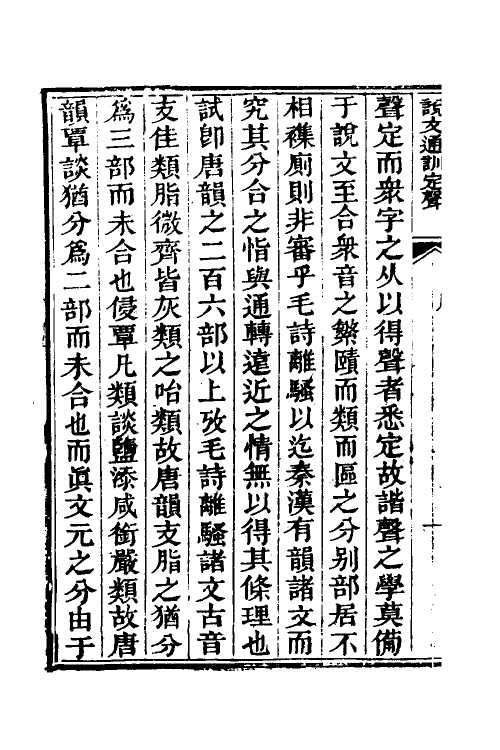 說文通訓定聲
聲定而衆字之从以得聲者悉定故諧聲之學莫備
于說文至合衆音之鰵賾而類而區之分别部居不
相襍廁則非審乎毛詩離騷以迄秦漢有韻諸文而
究其分合之恉與通轉遠近之情無以得其條理也
試卽唐韻之二百六部以上攷毛詩離騷諸文古音
支佳類脂微齊皆灰類之咍類故唐韻支脂之猶分
爲三部而未合也侵覃凡類談鹽添咸銜嚴類故唐
韻覃談猶分爲二部而未合也而眞文元之分由于